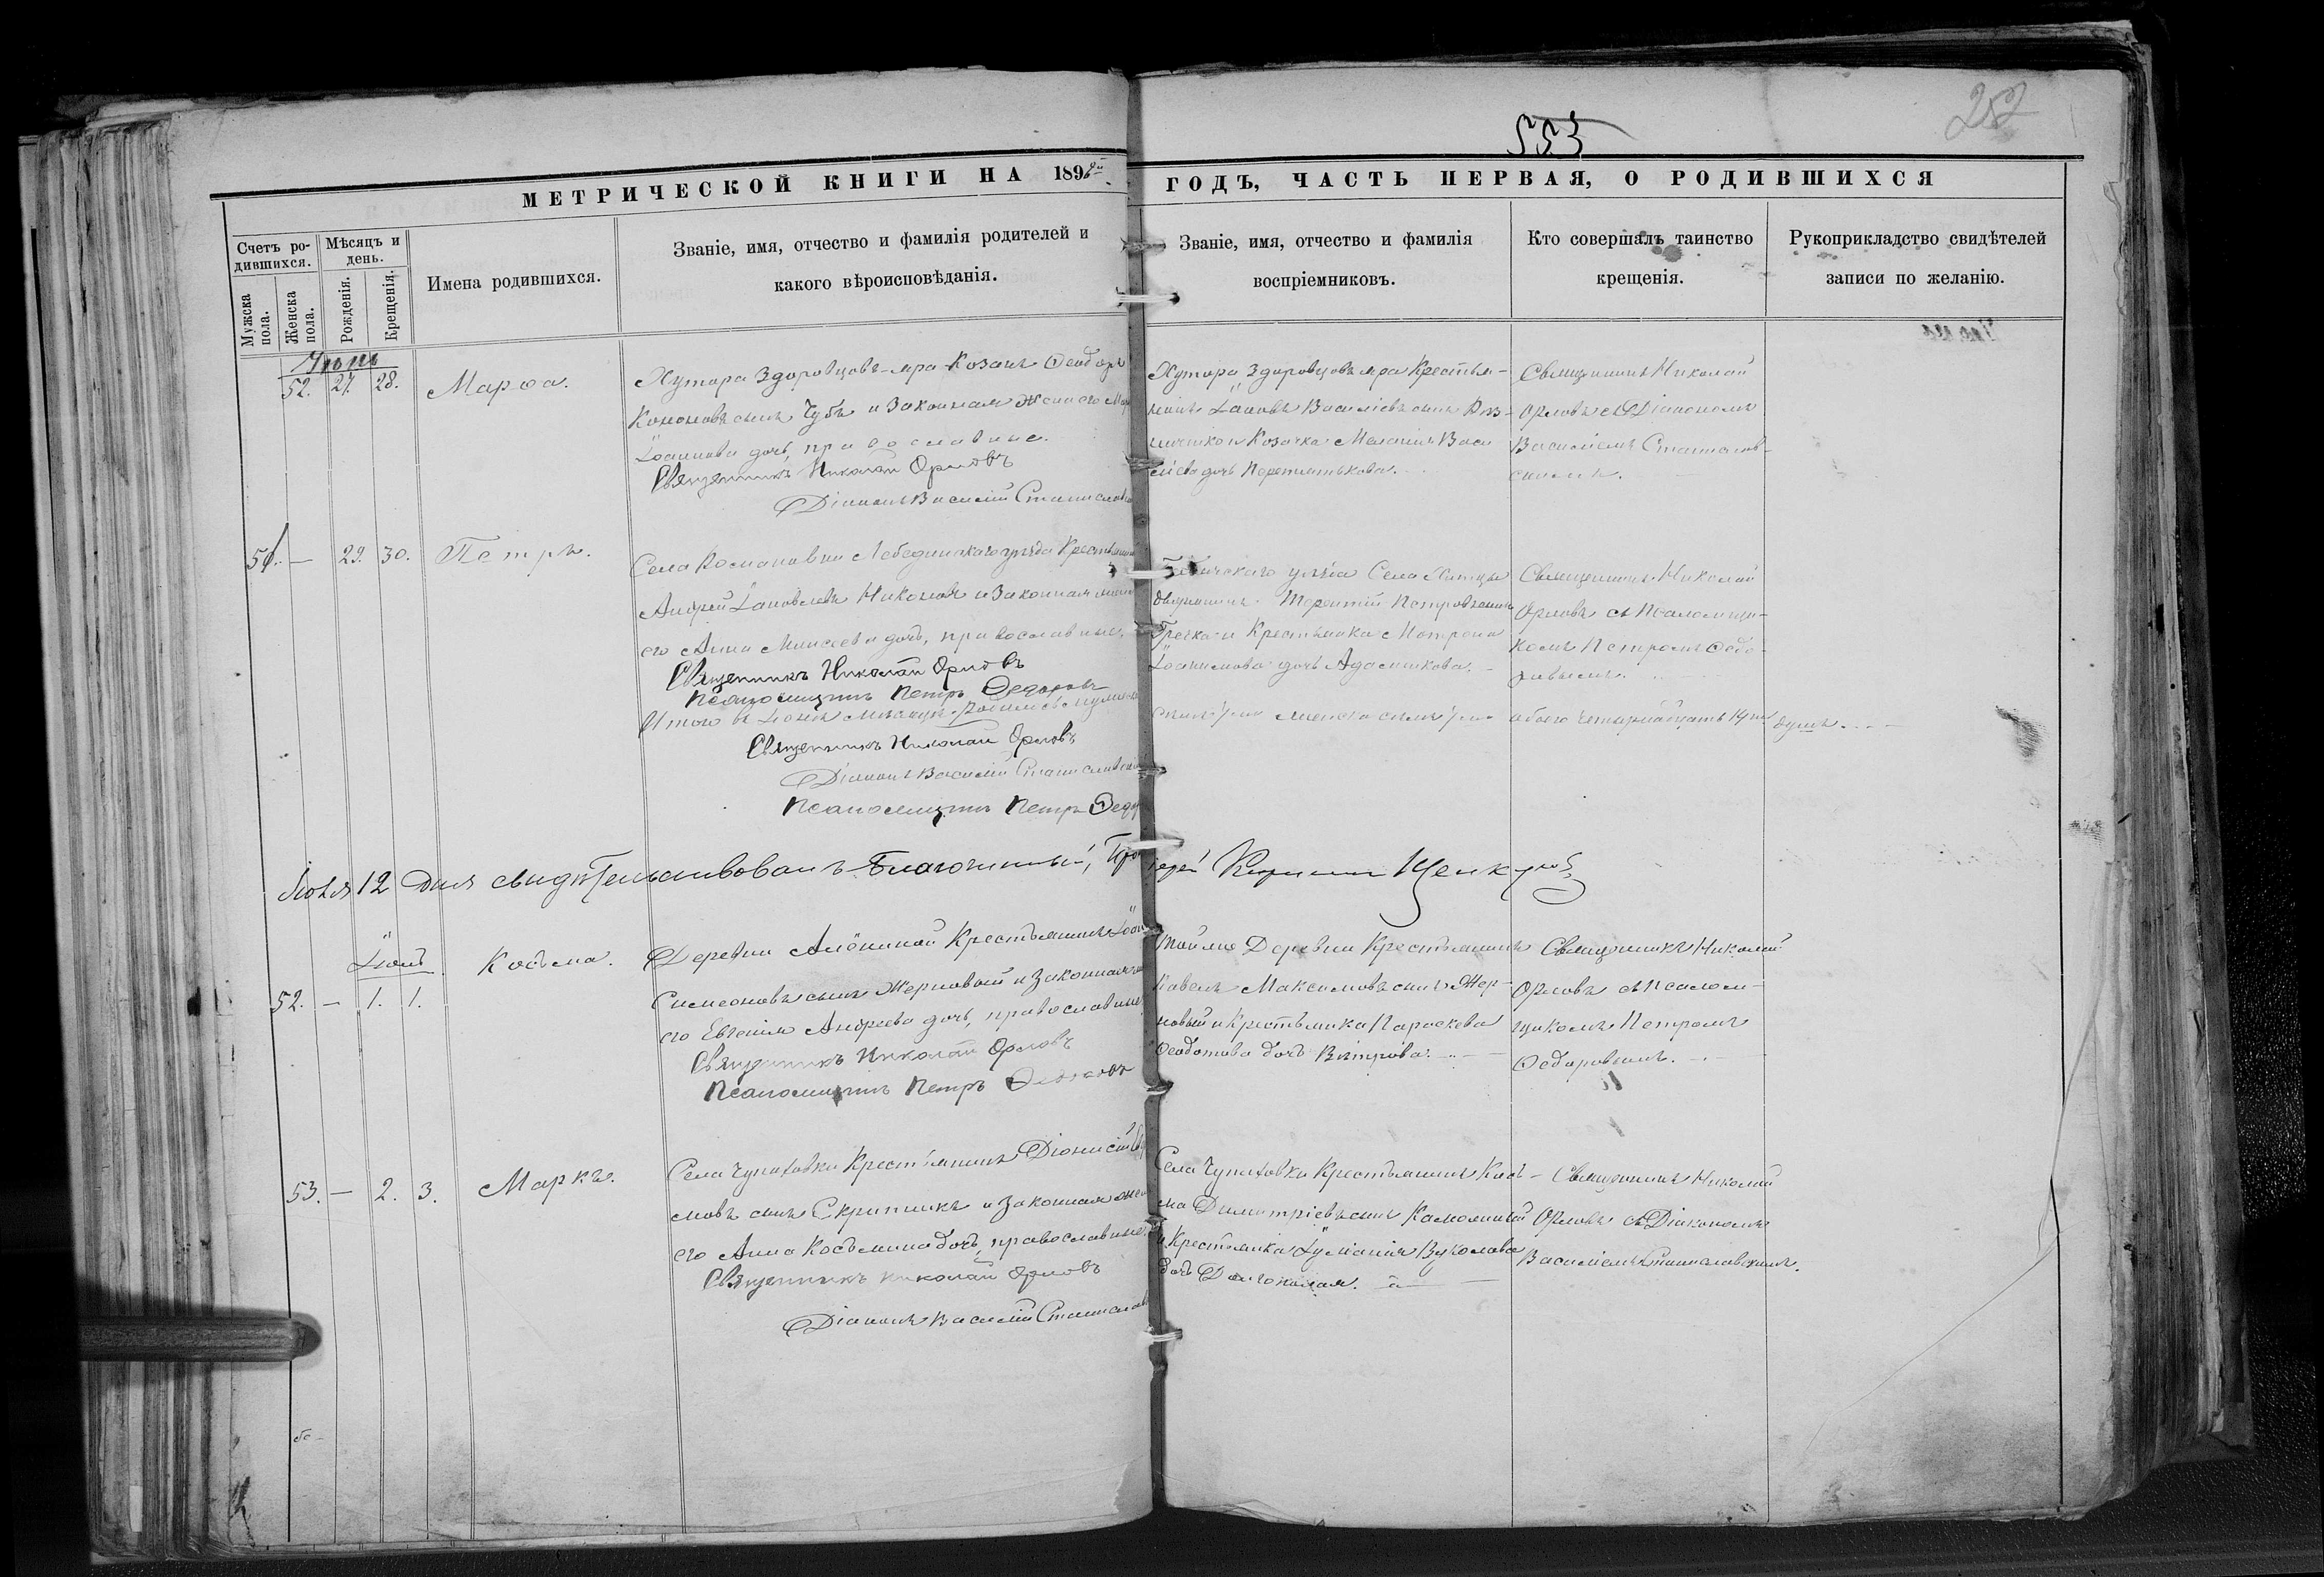 252
553
МЕТРИЧЕСКОЙ КНИГИ НА 1892й ГОДЪ, ЧАСТЬ ПЕРВАЯ, О РОДИВШИХСЯ
Счетъ ро-
дившихся.
Мужска
пола.
Женска
пола.
Мѣсяцъ и
день.
Рожденія.
Крещенія.
Имена родившихся.
Званіе, имя, отчество и фамилія родителей и
какого вѣроисповѣданія.
Званіе, имя, отчество и фамилія
воспріемниковъ.
Кто совершалъ таинство
крещенія.
Рукоприкладство свидѣтелей
записи по желанію.
Іюнь
52. 27. 28.
Марѳа.
Хутора Здоровцовъ-яра Козакъ Ѳеодоръ
Кононовъ сынъ Чубъ и законная жена его
Іоаннова дочь, православные.
Священникъ Николай Орловъ
Діаконъ Василій Станиславс
Хутора Здоровцовъ яра Крестья-
нинъ Іаковъ Василіевъ сынъ
и Козачка Меланія Васи
ліева дочь
Священникъ Николай
Орловъ съ Діакономъ
Василіемъ Станислав-
скимъ.
51. — 29. 30.
Петръ.
Села Космановки Лебединскаго уѣзда Крестьянинъ
Андрей Іаковлевъ Никоновъ и законная жена
его Анна Моисеева дочь, православные.
Священникъ Николай Орловъ
Псаломщикъ Петръ Ѳедоровъ
уѣзда Села Хитцы
дворянинъ Терентій Петровъ сынъ
Гречка и Крестьянка Матрона
Іоакимова дочь Адаменкова. —
Священникъ Николай
Орловъ съ Псаломщи-
комъ Петромъ Ѳедо-
ровымъ.
Итого въ Іюнѣ мѣсяцѣ родилось мужеска семь 7 женска семь 7 обоего четырнадцать 14 душъ.
Священникъ Николай Орловъ
Діаконъ Василій Станиславскій
Псаломщикъ Петръ Ѳедор
Іюля 12 дня свидѣтельствовалъ Благочинный, Протоіерей Кириллъ Щенкуновъ
Іюль
52. — 1. 1.
Косьма.
Деревни Алёниной Крестьянинъ Іоан
Симеоновъ сынъ Жерновой и законная жена
его Евгенія Андреева дочь, православные
Священникъ Николай Орловъ
Псаломщикъ Петръ Ѳедоровъ
Той же Деревни Крестьянинъ
Павелъ Максимовъ сынъ Жер-
новый и Крестьянка Параскева
Ѳеодотова дочь Вѣтрова. —
Священникъ Николай
Орловъ съ Псалом-
щикомъ Петромъ
Ѳедоровымъ. —
53. — 2. 3.
Маркъ.
Села Чупаховки Крестьянинъ Діонисій
мовъ сынъ Скрипникъ и законная жена
его Анна Косьмина дочь, православные.
Священникъ Николай Орловъ
Діаконъ Василій Станислав
Села Чупаховки Крестьянинъ Кось-
ма Димитріевъ сынъ
и Крестьянка Іуліанія Вуколова
дочь
Священникъ Николай
Орловъ съ Діакономъ
Василіемъ Станиславскимъ.